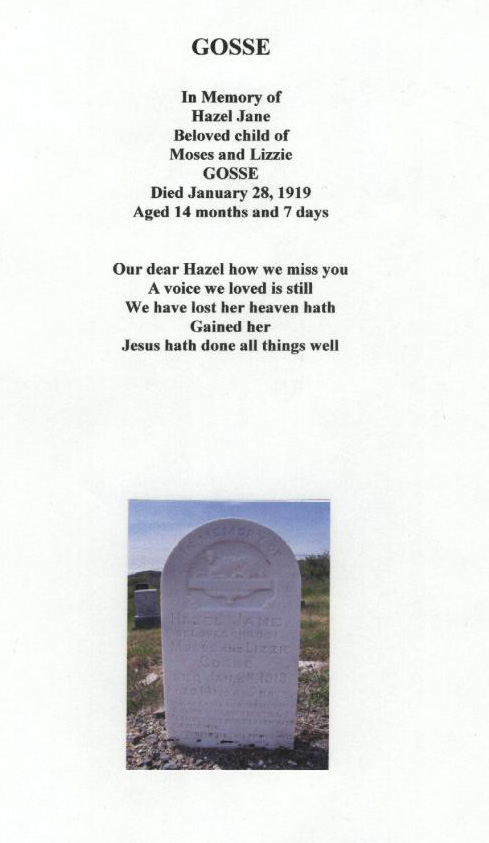 GOSSE
In Memory of
Hazel Jane
Beloved child of
Moses and Lizzie
GOSSE
Died January 28, 1919
Aged 14 months and 7 days
Our dear Hazel how we miss you
A voice we loved is still
We have lost her heaven hath
Gained her
Jesus hath done all things well
IN MEMORY OF
HAZEL JANE
BELOVED CHILD OF
MOSES AND LIZZIE
GOSSE